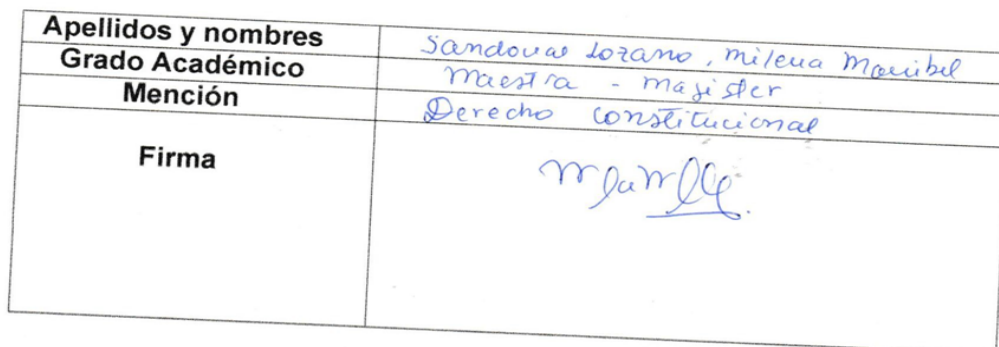 Apellidos y nombres Sandoval Lozano, Milena Maribel
Grado Académico Maestra - Magister
Mención Derecho constitucional
Firma